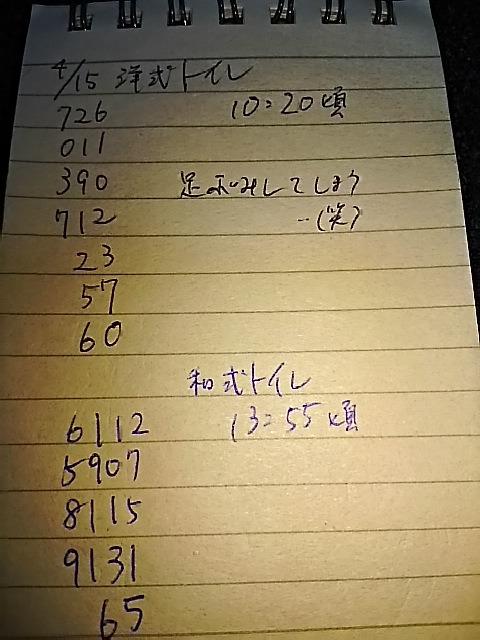 4/15 洋式トイレ
726 10:20頃
011
390 足ぶみしてしまう
712 …(笑)
23
57
60
和式トイレ
6112 13:55頃
5907
8115
9131
65